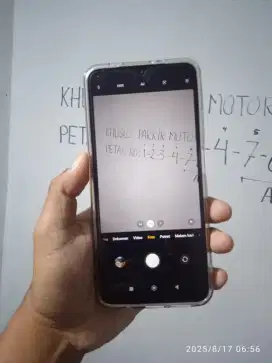 KHUSUS PARKIR MOTOR
PETAK NO: 1-2-3-4-7-
KH
MOTOR
PET
-4-7-
A
Dokumen Video Foto Potret
2025/6/17 06:56